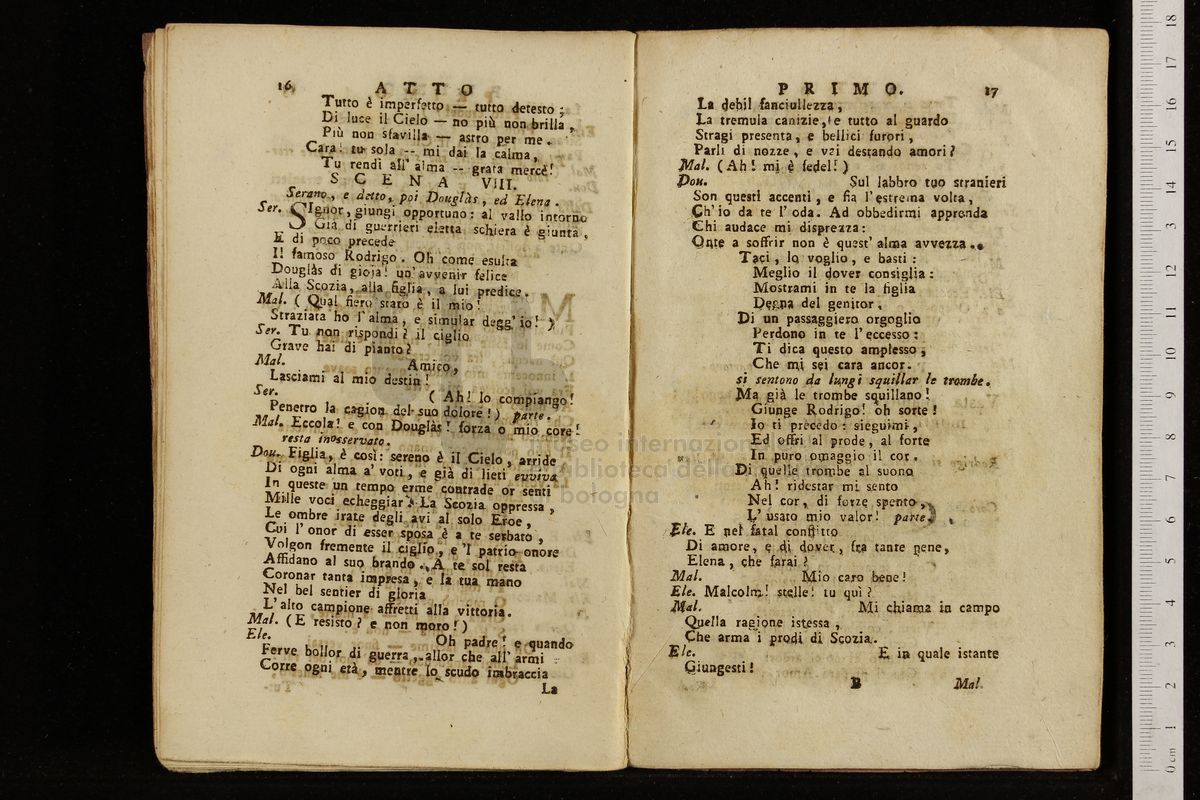 16 ATTO
Tutto è imperfetto — tutto detesto;
Di luce il Cielo — no più non brilla,
Più non sfavilla — astro per me.
Cara: tu sola -- mi dai la calma,
Tu rendi all' alma -- grata mercè!
SCENA VIII.
Serano, e detto, poi Douglàs, ed Elena.
Ser. SIgnor, giungi opportuno: al vallo intorno
Già di guerrieri eletta schiera è giunta,
E di poco precede
Il famoso Rodrigo. Oh come esulta
Douglàs di gioia! un' avvenir felice
Alla Scozia, alla figlia, a lui predice.
Mal. ( Qual fiero stato è il mio!
Straziata ho l' alma, e simular degg' io! )
Ser. Tu non rispondi? il ciglio
Grave hai di pianto?
Mal. Amico,
Lasciami al mio destin!
Ser. ( Ah! lo compiango!
Penetro la cagion del suo dolore! ) parte.
Mal. Eccola! e con Douglàs! forza o mio core!
resta inosservato.
Dou. Figlia, è così: sereno è il Cielo, arride
Di ogni alma a' voti, e già di lieti evviva
In queste un tempo erme contrade or senti
Mille voci echeggiar. La Scozia oppressa,
Le ombre irate degli avi al solo Eroe,
Cui l' onor di esser sposa è a te serbato,
Volgon fremente il ciglio, e 'l patrio onore
Affidano al suo brando. A te sol resta
Coronar tanta impresa, e la tua mano
Nel bel sentier di gloria
L' alto campione affretti alla vittoria.
Mal. (E resisto? e non moro!)
Ele. Oh padre! e quando
Ferve bollor di guerra, allor che all' armi
Corre ogni età, mentre lo scudo imbraccia
La
PRIMO. 17
La debil fanciullezza,
La tremula canizie, e tutto al guardo
Stragi presenta, e bellici furori,
Parli di nozze, e vai destando amori?
Mal. (Ah! mi è fedel!)
Dou. Sul labbro tuo stranieri
Son questi accenti, e fia l'estrema volta,
Ch'io da te l'oda. Ad obbedirmi apprenda
Chi audace mi disprezza:
Onte a soffrir non è quest' alma avvezza..
Taci, lo voglio, e basti:
Meglio il dover consiglia:
Mostrami in te la figlia
Degna del genitor.
Di un passaggiero orgoglio
Perdono in te l'eccesso:
Ti dica questo amplesso,
Che mi sei cara ancor.
si sentono da lungi squillar le trombe.
Ma già le trombe squillano!
Giunge Rodrigo! oh sorte!
Io ti precedo: sieguimi,
Ed offri al prode, al forte
In puro omaggio il cor.
Di quelle trombe al suono
Ah! ridestar mi sento
Nel cor, di forze spento,
L' usato mio valor! parte.
Ele. E nel fatal conflitto
Di amore, e di dover, fra tante pene,
Elena, che farai?
Mal. Mio caro bene!
Ele. Malcolm! stelle! tu qui?
Mal. Mi chiama in campo
Quella ragione istessa,
Che arma i prodi di Scozia.
Ele. E in quale istante
Giungesti!
B Mal.
museo internazionale
biblioteca della
di bologna
0 cm 1 2 3 4 5 6 7 8 9 10 11 12 13 14 15 16 17 18